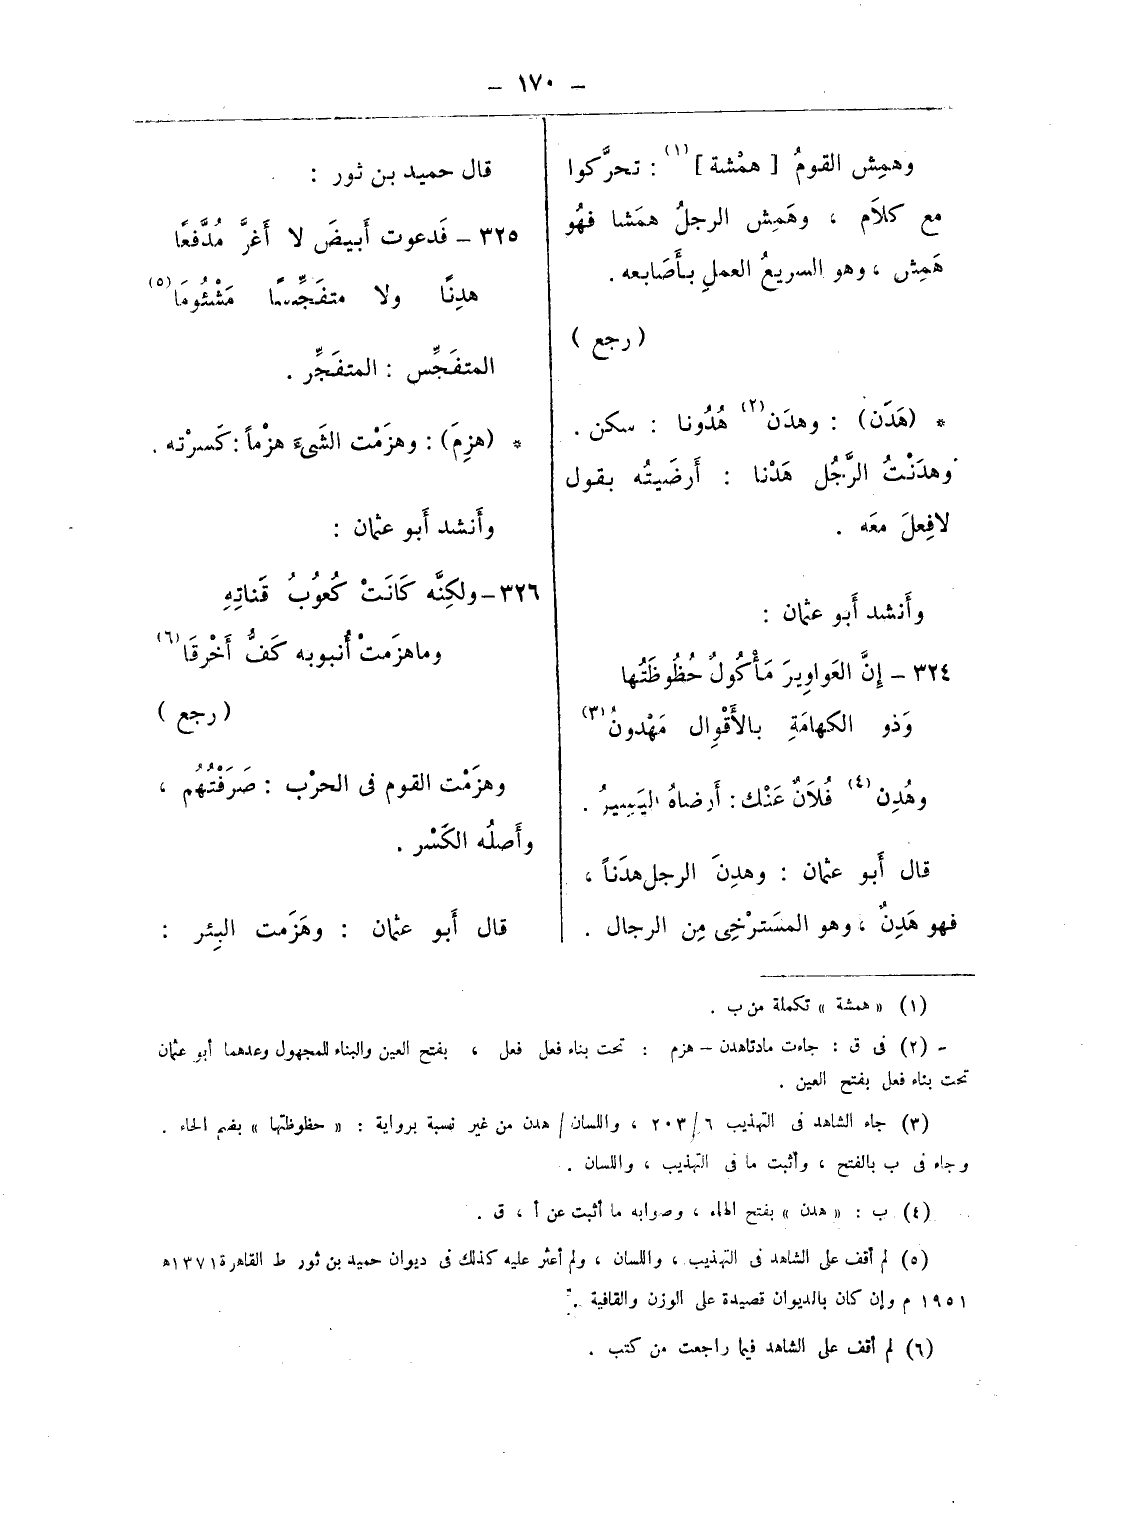 – ١٧٠ –
وهمِش القومُ [ همْشة ] (١) : تحرَّكوا
مع كلاَم ، وهَمِش الرجلُ همَشا فهُو
هَمِش ، وهو السريعُ العملِ بأَصَابعه .
( رجع )
* (هَدَن) : وهدَن(٢) هُدُونا : سكن .
وهدَنْتُ الرَّجُل هَدْنا : أَرضَيتُه بقول
لافِعلَ معَه .
وأَنشد أَبو عثمان :
٣٢٤ – إِنَّ العَواوِيرَ مَأْكُولٌ حُظُوظَتُها
وَذو الكهامَةِ بالأَقْوالِ مَهْدونُ(٣)
وهُدِن(٤) فُلاَنٌ عَنْك : أَرضاهُ اليَسِيرُ .
قال أَبو عثمان : وهدِنَ الرجل هدَناً ،
فهو هَدِنٌ ، وهو المسَترْخِى مِن الرجال .
قال حميد بن ثور :
٣٢٥ – فَدعوت أَبيضَ لا أَغرَّ مُدَّفعًا
هدِنًا ولا متفَجِّسًا مَشْئُومَا(٥)
المتفَجِّس : المتفَجِّر .
* (هزِمَ) : وهزَمْت الشَىءَ هزْماً : كَسرْته .
وأَنشد أَبو عثمان :
٣٢٦ – ولكِنَّه كَانَتْ كُعوُبُ قَناتِهِ
وماهزَمتْ أُنبوبه كَفُّ أَخْرقَا(٦)
( رجع )
وهزَمْت القوم فى الحرْب : صَرَفْتُهُم ،
وأَصلُه الكَسْر .
قال أَبو عثمان : وهَزَمت البِئر :
(١) « همشة » تكملة من ب .
– (٢) فى ق : جاءت مادتاهدن – هزم : تحت بناء فعل فعل ، بفتح العين والبناء للمجهول وعدهما أبو عثمان
تحت بناء فعل بفتح العين .
(٣) جاء الشاهد فى التهذيب ٦/٢٠٣ ، واللسان / هدن من غير نسبة برواية : « حظوظتها » بضم الحاء .
وجاء فى ب بالفتح ، وأثبت ما فى التهذيب ، واللسان .
(٤) ب : « هدن » بفتح الهاء ، وصوابه ما أثبت عن أ ، ق .
(٥) لم أقف على الشاهد فى التهذيب ، واللسان ، ولم أعثر عليه كذلك فى ديوان حميد بن ثور ط القاهرة ١٣٧١ه
١٩٥١ م وإن كان بالديوان قصيدة على الوزن والقافية .
(٦) لم أقف على الشاهد فيما راجعت من كتب .